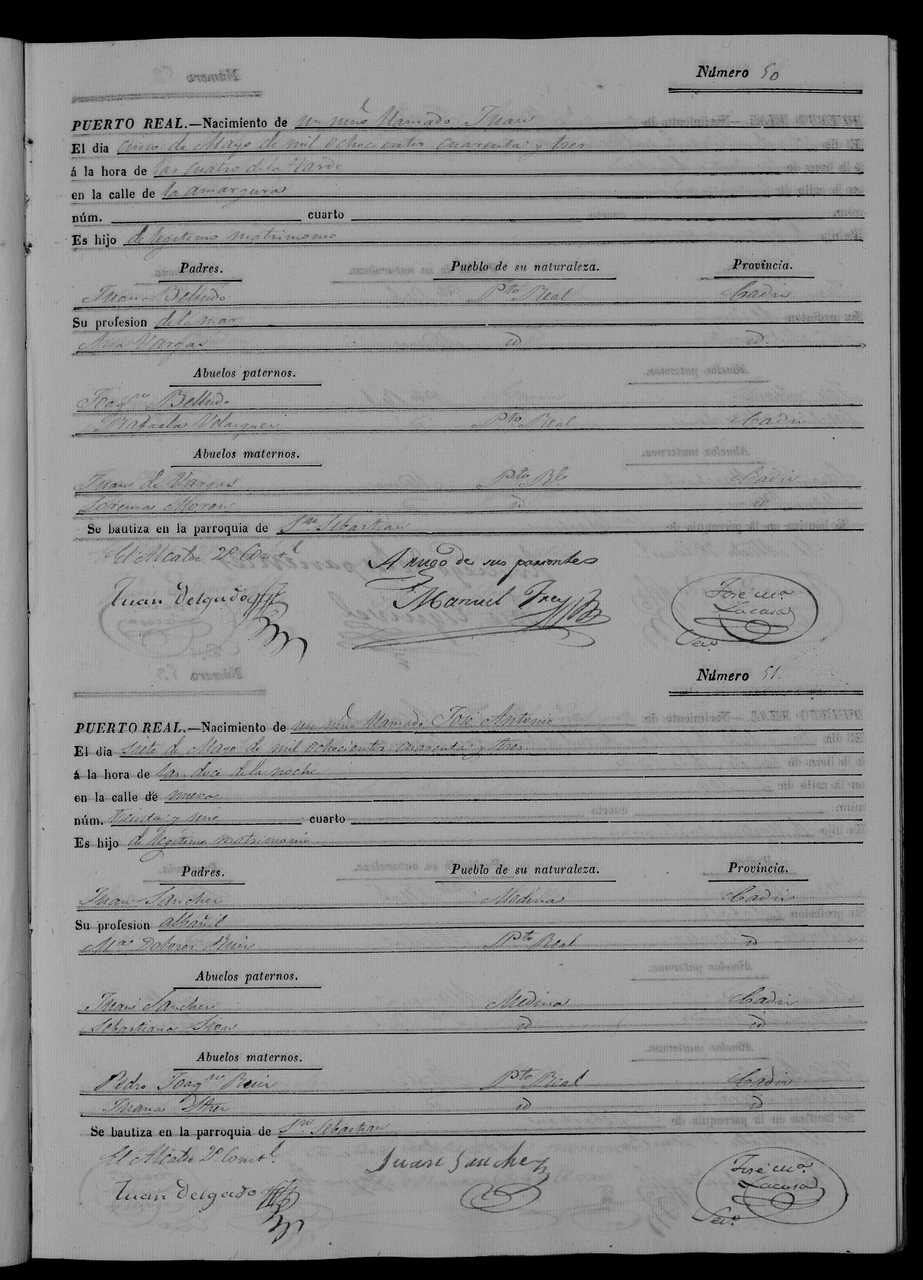 Número 50
PUERTO REAL.—Nacimiento de un niño llamado Juan
El dia cinco de Mayo de mil ochocientos cuarenta y tres
á la hora de las cuatro de la tarde
en la calle de la amargura
núm. cuarto
Es hijo de legitimo matrimonio
Padres. Pueblo de su naturaleza. Provincia.
Juan Bellido Pto Real Cadiz
Su profesion de la mar
Ana Vargas id id
Abuelos paternos.
Joaqn Bellido
Rafaela Velazquez Pto Real Cadiz
Abuelos maternos.
Juan de Vargas Pto Rl Cadiz
Moran id id
Se bautiza en la parroquia de Sn Sebastian
El Alcalde 2º Constl
A ruego de sus parientes
Juan Delgado Manuel José Mª
Lacosa
Seco
Número 51.
PUERTO REAL.—Nacimiento de un niño llamado José Antonio
El dia siete de Mayo de mil ochocientos cuarenta y tres
á la hora de las doce de la noche
en la calle de nueva
núm. treinta y nueve cuarto
Es hijo de legitimo matrimonio
Padres. Pueblo de su naturaleza. Provincia.
Juan Sanchez Medina Cadiz
Su profesion albañil
Mª Dolores Pto Real id
Abuelos paternos.
Juan Sanchez Medina Cadiz
Sebastiana id id
Abuelos maternos.
Pedro Joaqn Pto Real Cadiz
Juana id id
Se bautiza en la parroquia de Sn Sebastian
El Alcalde 2º Constl
Juan Sanchez
Juan Delgado José Mª
Lacosa
Seco